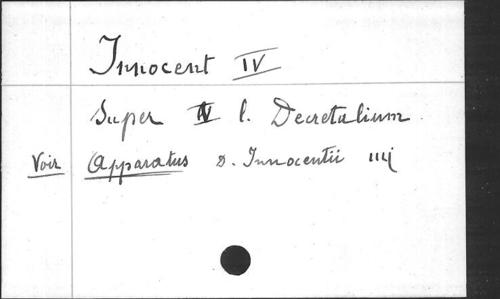 Innocent IV
Super V l. Decretalium.
Voir Apparatus D. Innocentii iiij